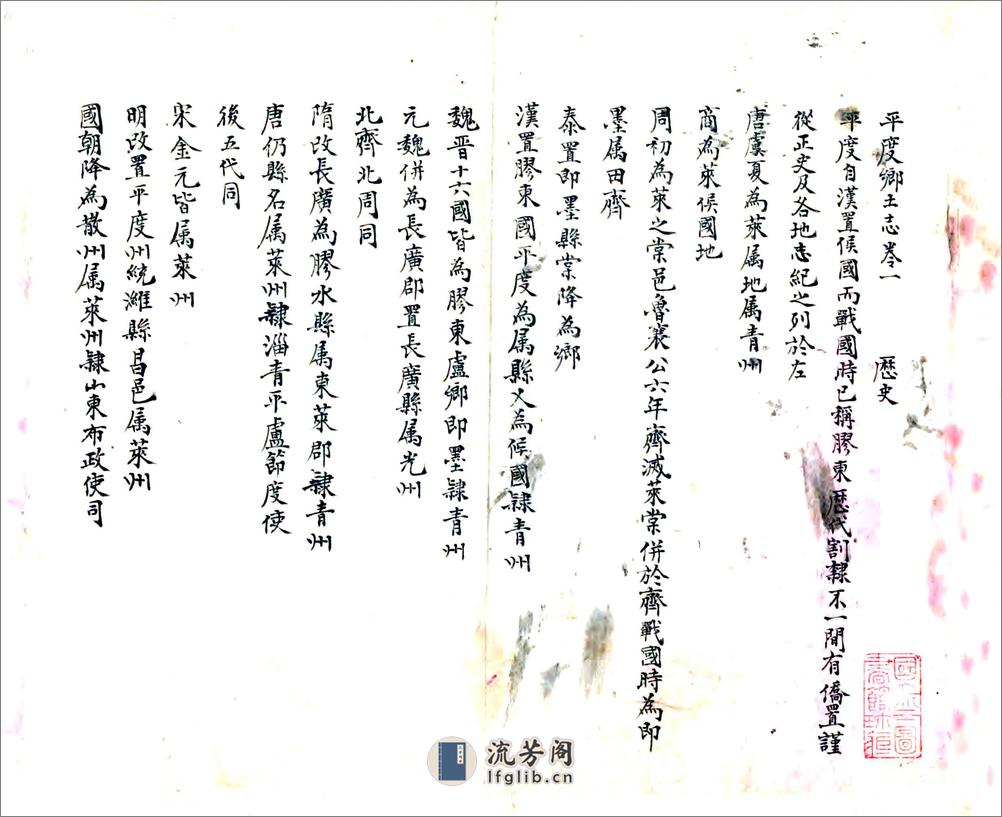 平度鄉土志卷一　　歷史
平度自漢置侯國而戰國時已稱膠東歷代割隸不一間有僑置謹
從正史及各地志紀之列於左
唐虞夏為萊属地属青州
商為萊侯國地
周初為萊之棠邑魯襄公六年齊滅萊棠併於齊戰國時為即
墨属田齊
秦置即墨縣棠降為鄉
漢置膠東國平度為属縣又為侯國隸青州
魏晋十六國皆為膠東盧鄉即墨隸青州
元魏併為長廣郡置長廣縣属光州
北齊北周同
隋改長廣為膠水縣属東萊郡隸青州
唐仍縣名属萊州隸淄青平盧節度使
後五代同
宋金元皆属萊州
明改置平度州統濰縣昌邑属萊州
國朝降為散州属萊州隸山東布政使司
流芳阁
lfglib.cn